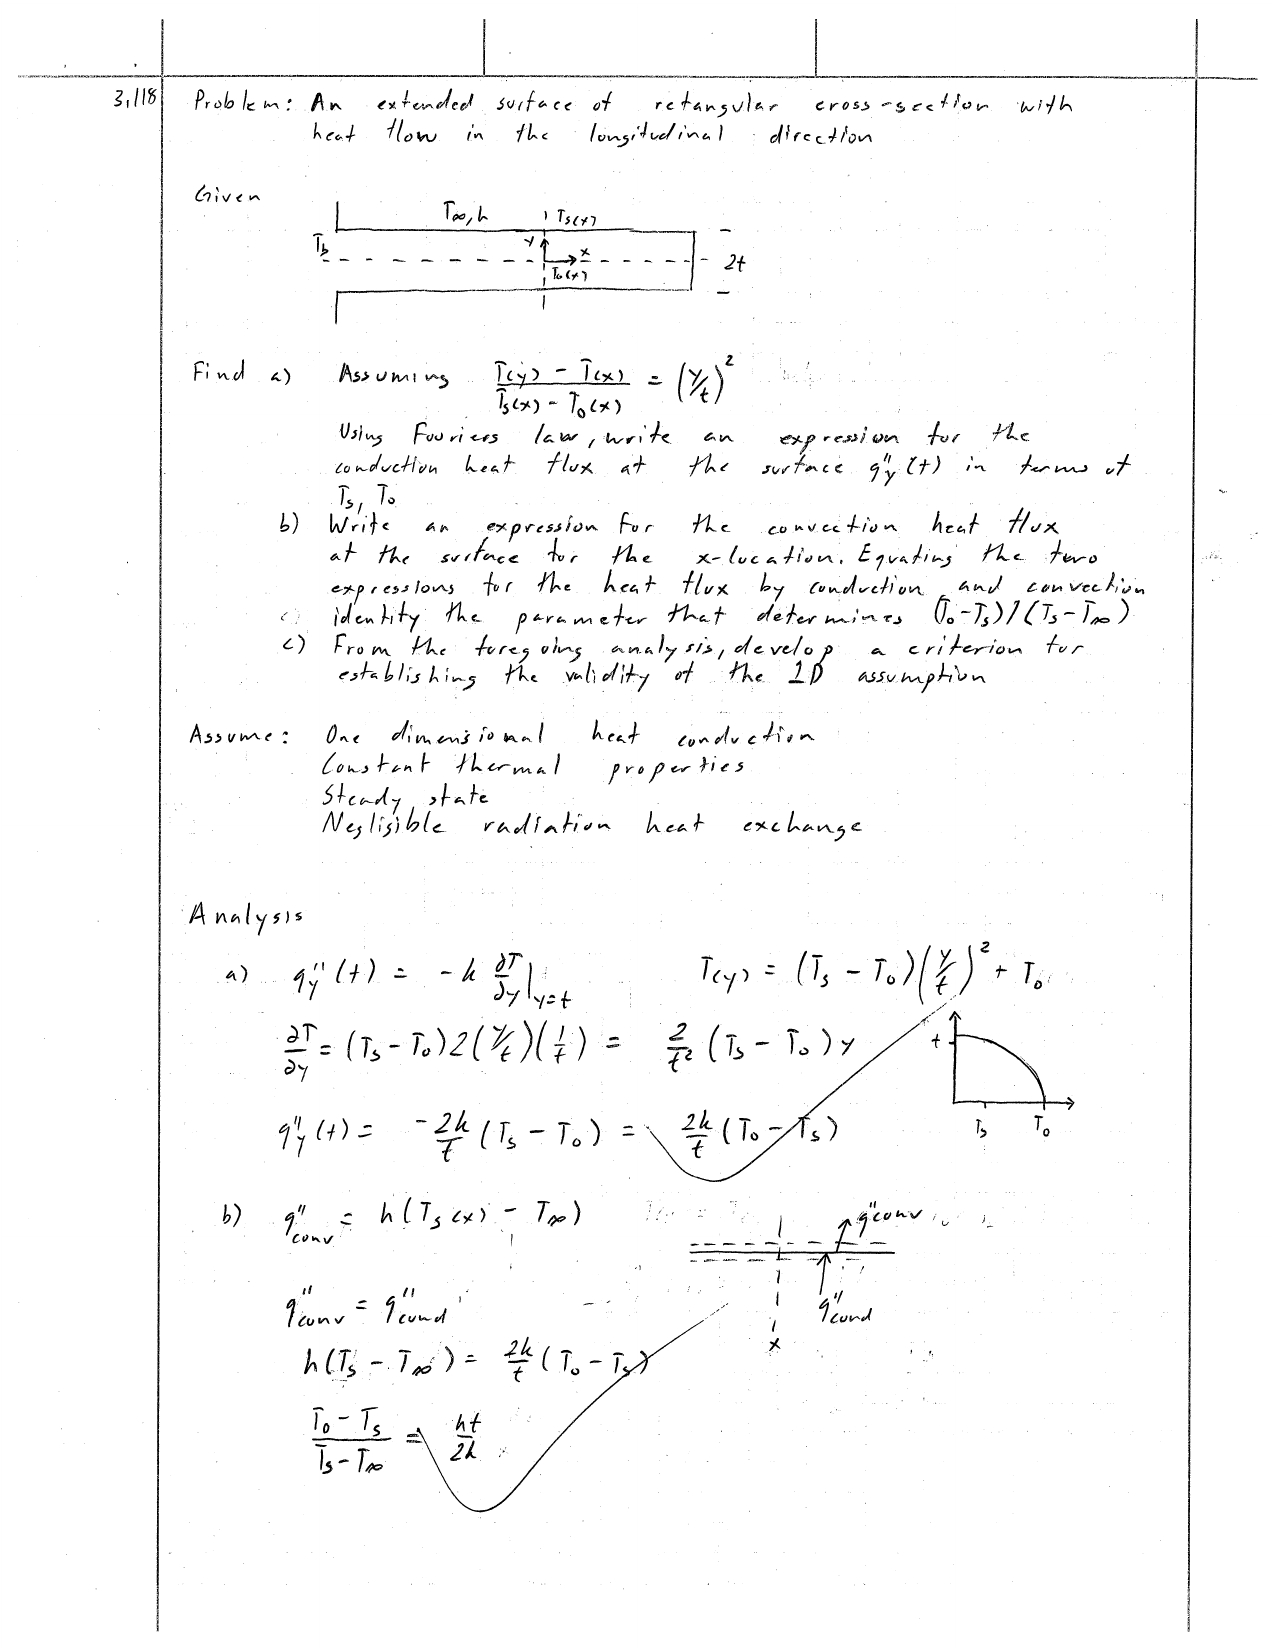 3.118
Problem: An extended surface of retangular cross-section with
heat flow in the longitudinal direction
Given
T∞, h
Ts(x)
Tb
y
x
To(x)
2t
Find a) Assuming (T(y) - T(x))/(Ts(x) - To(x)) = (y/t)²
Using Fouriers law, write an expression for the
conduction heat flux at the surface q"y(t) in terms of
Ts, To
b) Write an expression for the convection heat flux
at the surface for the x-location. Equating the two
expressions for the heat flux by conduction and convection
identity the parameter that determines (To-Ts)/(Ts-T∞)
c) From the foregoing analysis, develop a criterion for
establishing the validity of the 1D assumption
Assume: One dimensional heat conduction
Constant thermal properties
Steady state
Negligible radiation heat exchange
Analysis
a) q"y(t) = -k ∂T/∂y|y=t T(y) = (Ts - To)(y/t)² + To
∂T/∂y = (Ts - To)2(y/t)(1/t) = 2/t² (Ts - To)y
t
Ts To
q"y(t) = -2k/t (Ts - To) = 2k/t (To - Ts)
b) q"conv = h(Ts(x) - T∞)
q"conv
q"conv = q"cond
q"cond
x
h(Ts - T∞) = 2k/t (To - Ts)
(To - Ts)/(Ts - T∞) = ht/2k